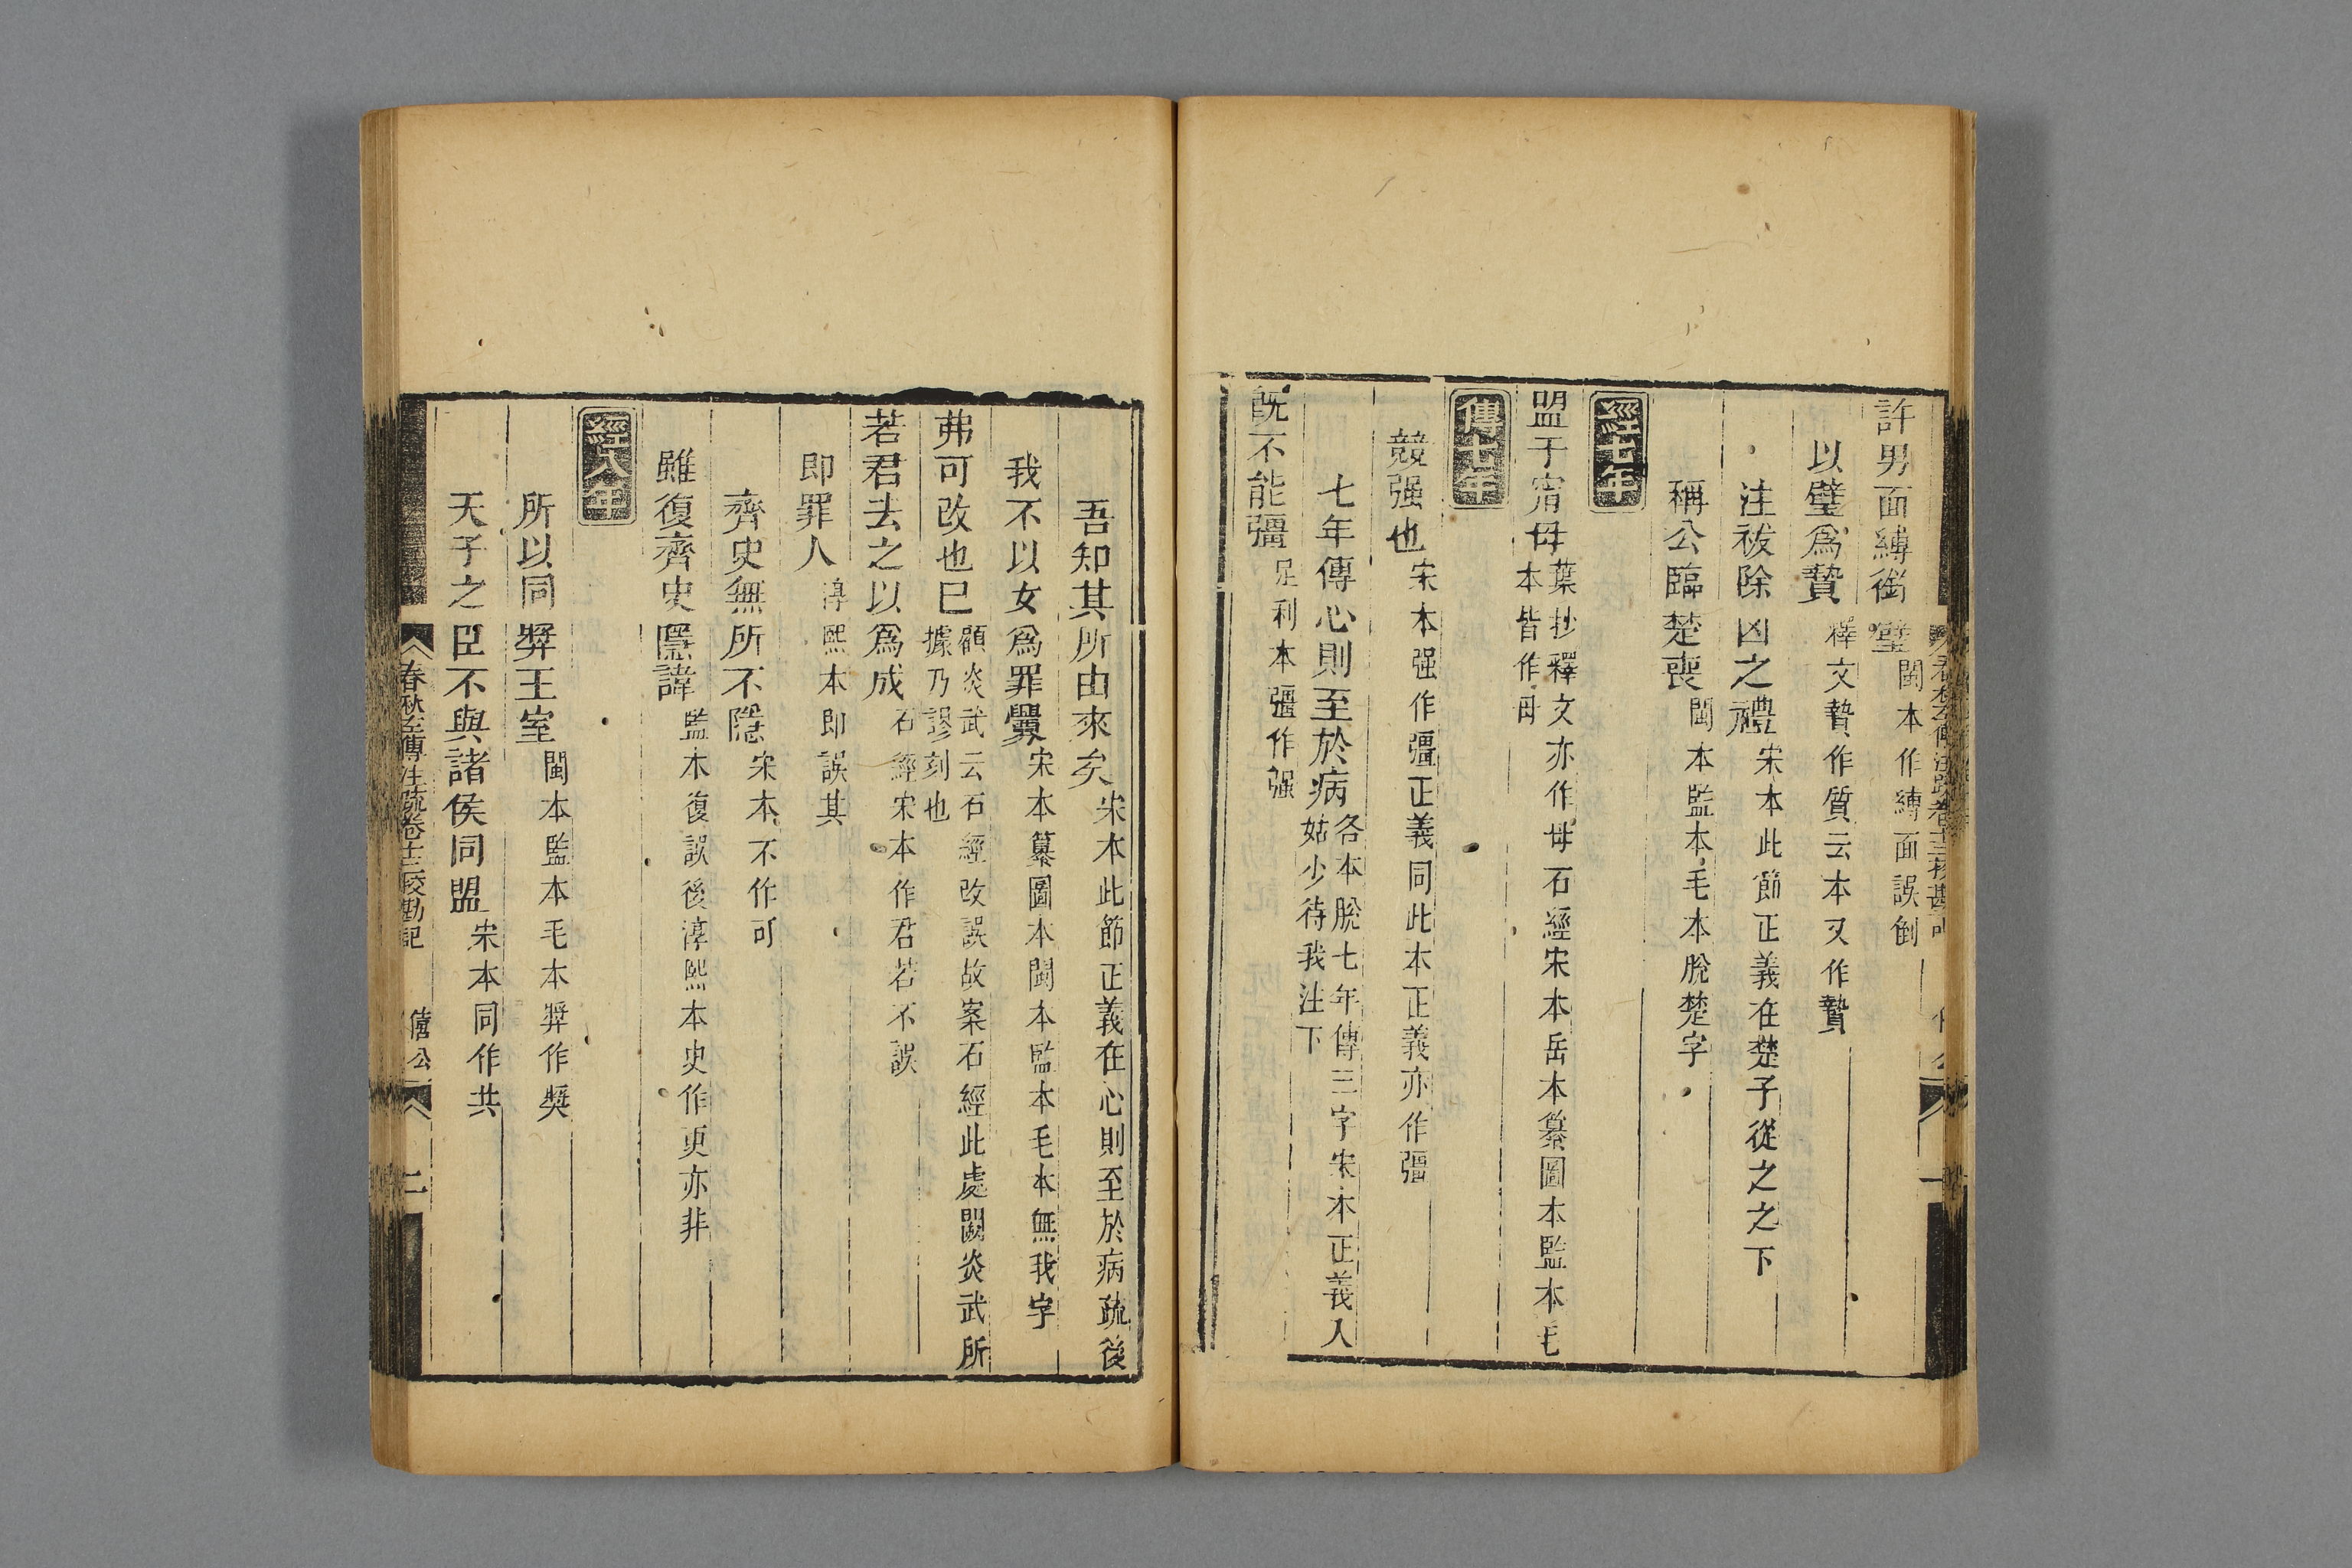 許男面縛銜璧閩本作縛面誤倒
以璧爲贄釋文贄作質云本又作贄
注祓除凶之禮宋本此節正義在楚子從之之下
稱公臨楚喪閩本監本毛本脫楚字
經七年
盟于甯母葉抄釋文亦作母石經宋本岳本纂圖本監本毛
本皆作毋
傳七年
競强也宋本强作彊正義同此本正義亦作彊
七年傳心則至於病各本脫七年傳三字宋本正義入
姑少待我注下
旣不能彊足利本彊作强
吾知其所由來矣宋本此節正義在心則至於病疏後
我不以女爲罪釁宋本纂圖本閩本監本毛本無我字
弗可改也巳顧炎武云石經改誤故案石經此處闕炎武所
據乃謬刻也
若君去之以爲成石經宋本作君若不誤
即罪人淳熙本即誤其
齊史無所不隱宋本不作可
雖復齊史隱諱監本復誤後淳熙本史作吏亦非
經八年
所以同獎王室閩本監本毛本獎作奬
天子之臣不與諸侯同盟宋本同作共
春秋左傳注疏卷十三挍勘記
僖公
二